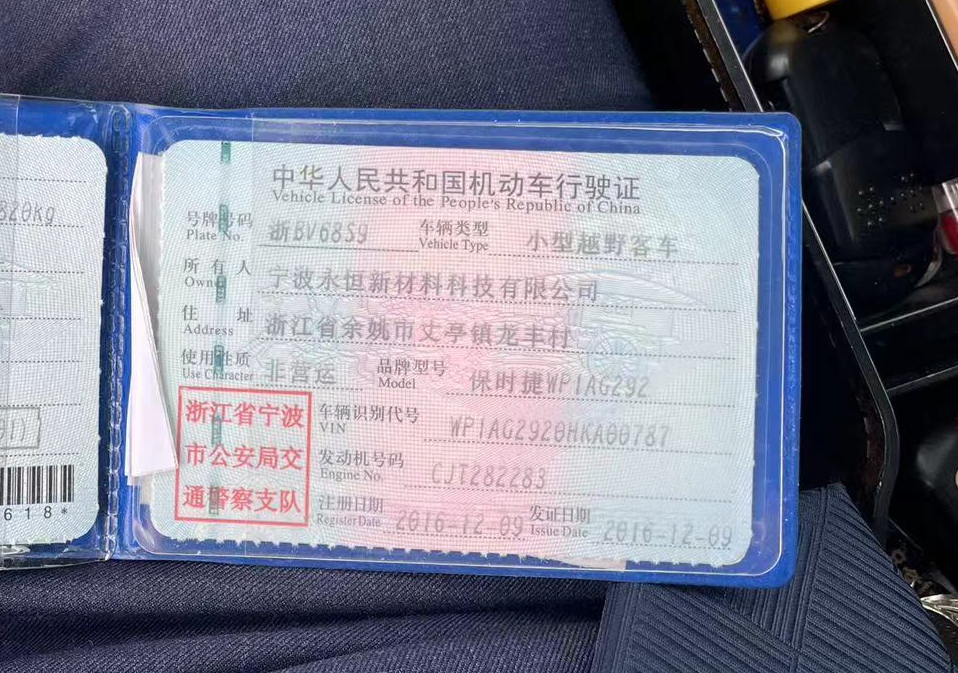 820kg
618*
中华人民共和国机动车行驶证
Vehicle License of the People's Republic of China
号牌号码 浙BV68S9 车辆类型 小型越野客车
Plate No. Vehicle Type
所有人 宁波永恒新材料科技有限公司
Owner
住址 浙江省余姚市丈亭镇龙丰村
Address
使用性质 非营运 品牌型号 保时捷WP1AG292
Use Character Model
浙江省宁波
市公安局交
通警察支队
车辆识别代号 WP1AG2920HKA00787
VIN
发动机号码 CJT282283
Engine No.
注册日期 2016-12-09 发证日期 2016-12-09
Register Date Issue Date